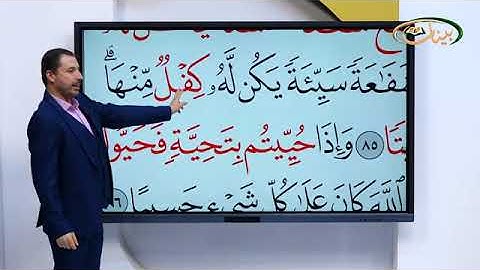 بينات
شَفَٰعَةٗ سَيِّئَةٗ يَكُن لَّهُۥ كِفۡلٞ مِّنۡهَاۗ
٨٥ وَإِذَا حُيِّيتُم بِتَحِيَّةٖ فَحَيُّواْ
ٱللَّهَ كَانَ عَلَىٰ كُلِّ شَيۡءٍ حَسِيبًا